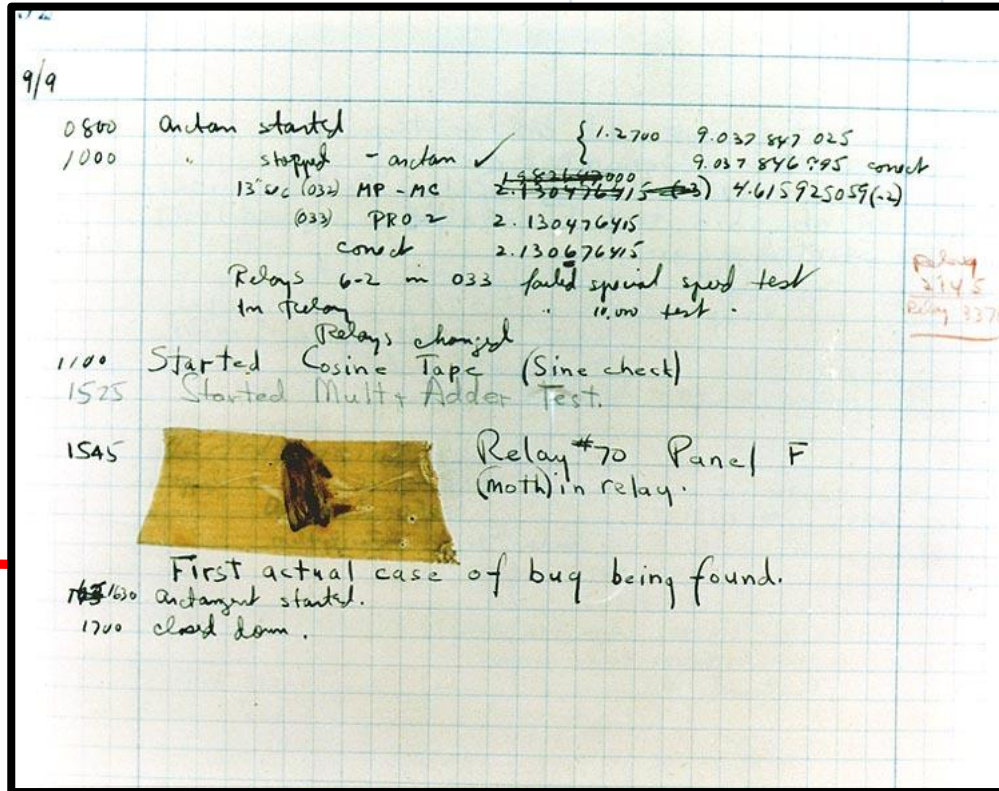 9/9
0800 arctan started { 1.2700 9.037 847 025
1000 " stopped - arctan ✓ 9.037 846 795 correct
13"uc (032) MP - MC 2.130476415 (-3) 4.615925059(-2)
(033) PRO 2 2.130476415
correct 2.130676415
Relays 6-2 in 033 failed special speed test
In Relay " 10.000 test .
Relay
2145
Relay 337
Relays changed
1100 Started Cosine Tape (Sine check)
1525 Started Mult + Adder Test.
1545 Relay #70 Panel F
(moth) in relay.
First actual case of bug being found.
1630 arctangent started.
1700 closed down .